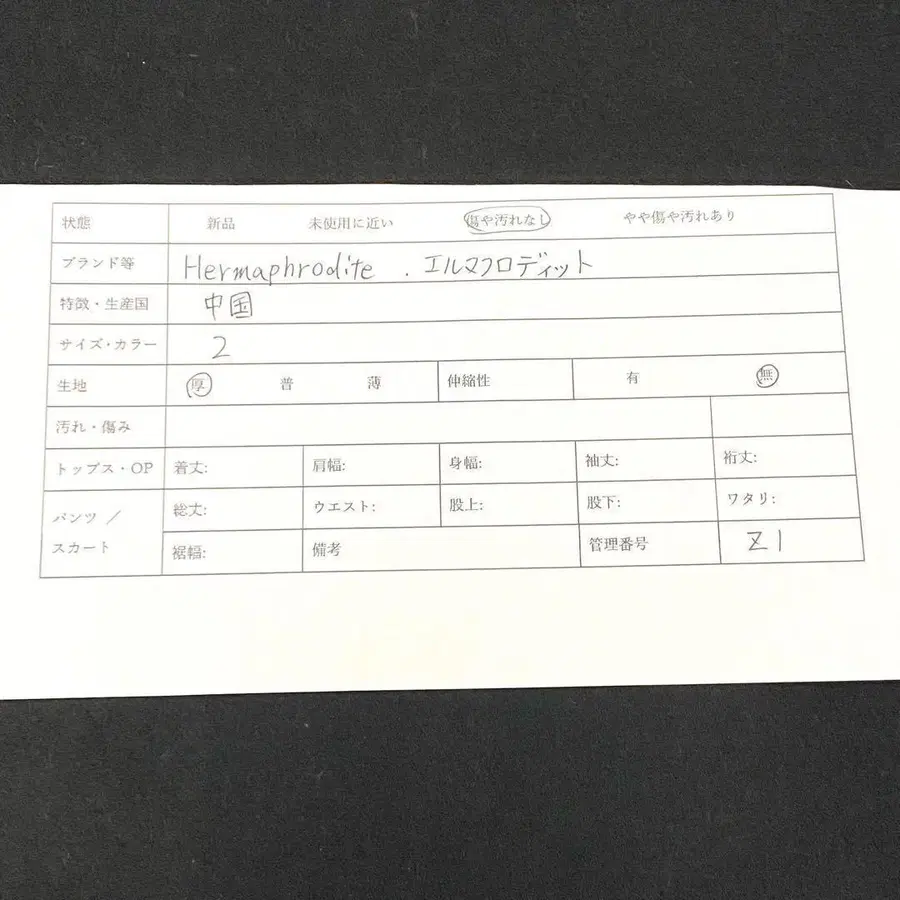 状態 新品 未使用に近い 傷や汚れなし やや傷や汚れあり
ブランド等 Hermaphrodite . エルマフロディット
特徴・生産国 中国
サイズ・カラー 2
生地 厚 普 薄 伸縮性 有 無
汚れ・傷み
トップス・OP 着丈: 肩幅: 身幅: 袖丈: 裄丈:
パンツ／スカート 総丈: ウエスト: 股上: 股下: ワタリ:
裾幅: 備考 管理番号 Z1